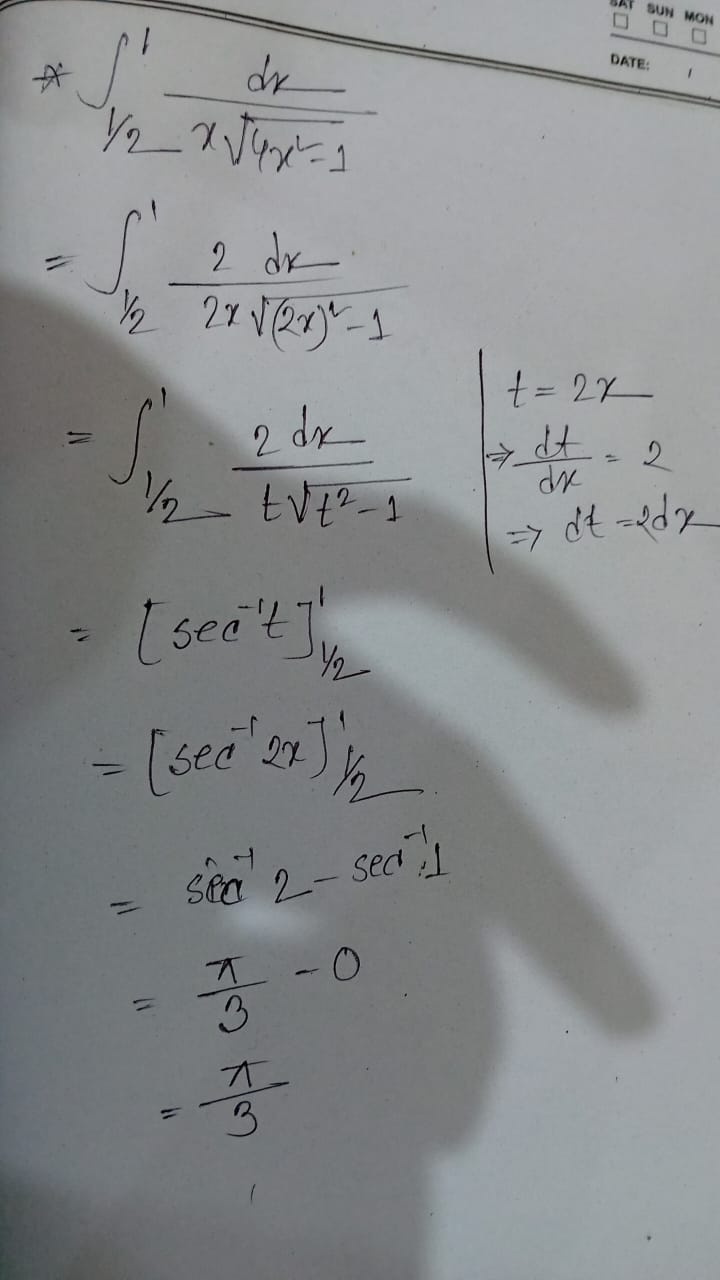 SAT SUN MON
DATE: /
* ∫_{1/2}^{1} dx / x√(4x²-1)
= ∫_{1/2}^{1} 2 dx / 2x √((2x)²-1)
= ∫_{1/2}^{1} 2 dx / t√(t²-1)
t = 2x
⇒ dt/dx = 2
⇒ dt = 2dx
= [sec⁻¹t]_{1/2}^{1}
= [sec⁻¹ 2x]_{1/2}^{1}
= sec⁻¹ 2 - sec⁻¹ 1
= π/3 - 0
= π/3